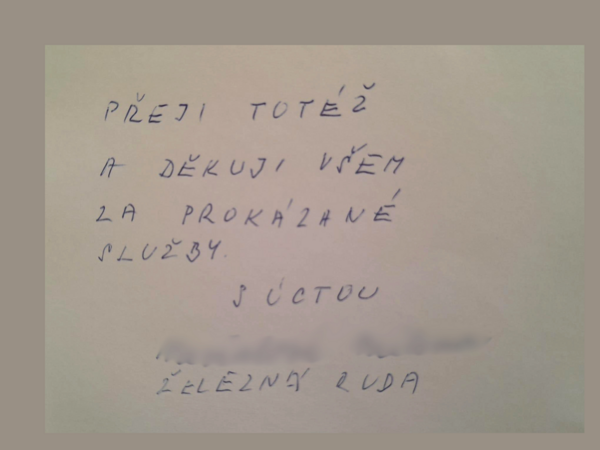 PŘEJI TOTÉŽ
A DĚKUJI VŠEM
ZA PROKÁZANÉ
SLUŽBY.
S ÚCTOU
ŽELEZNÁ RUDA